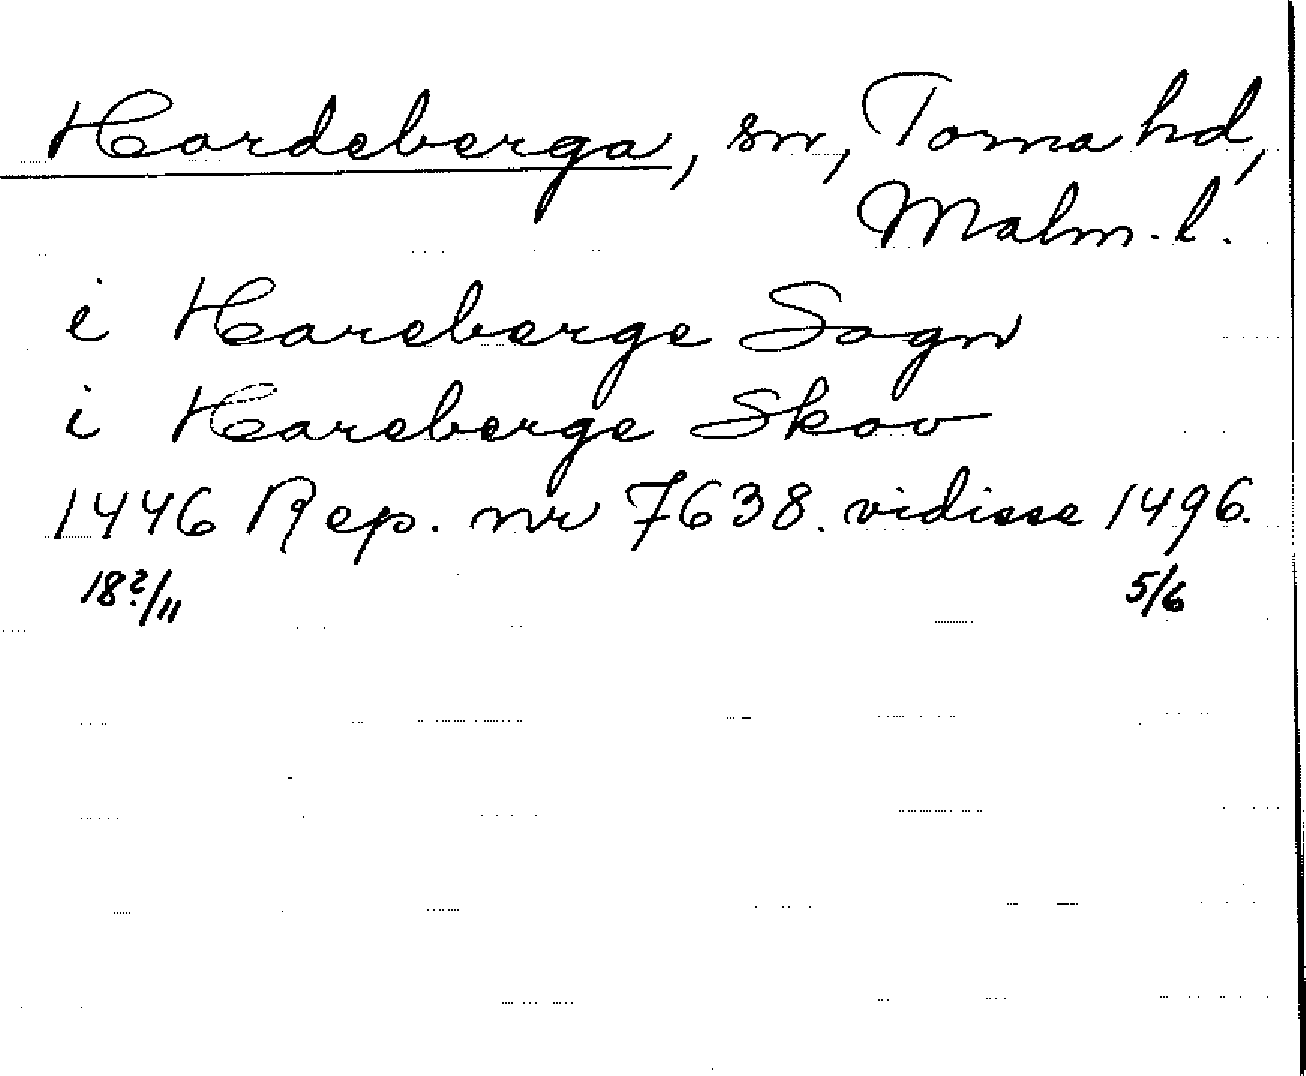 Hardeberga, sn, Torna hd,
Malm. l.
i Hareberge Sogn
i Hareberge Skov
1446 Rep. nr 7638. vidisse 1496.
18?/11 5/6